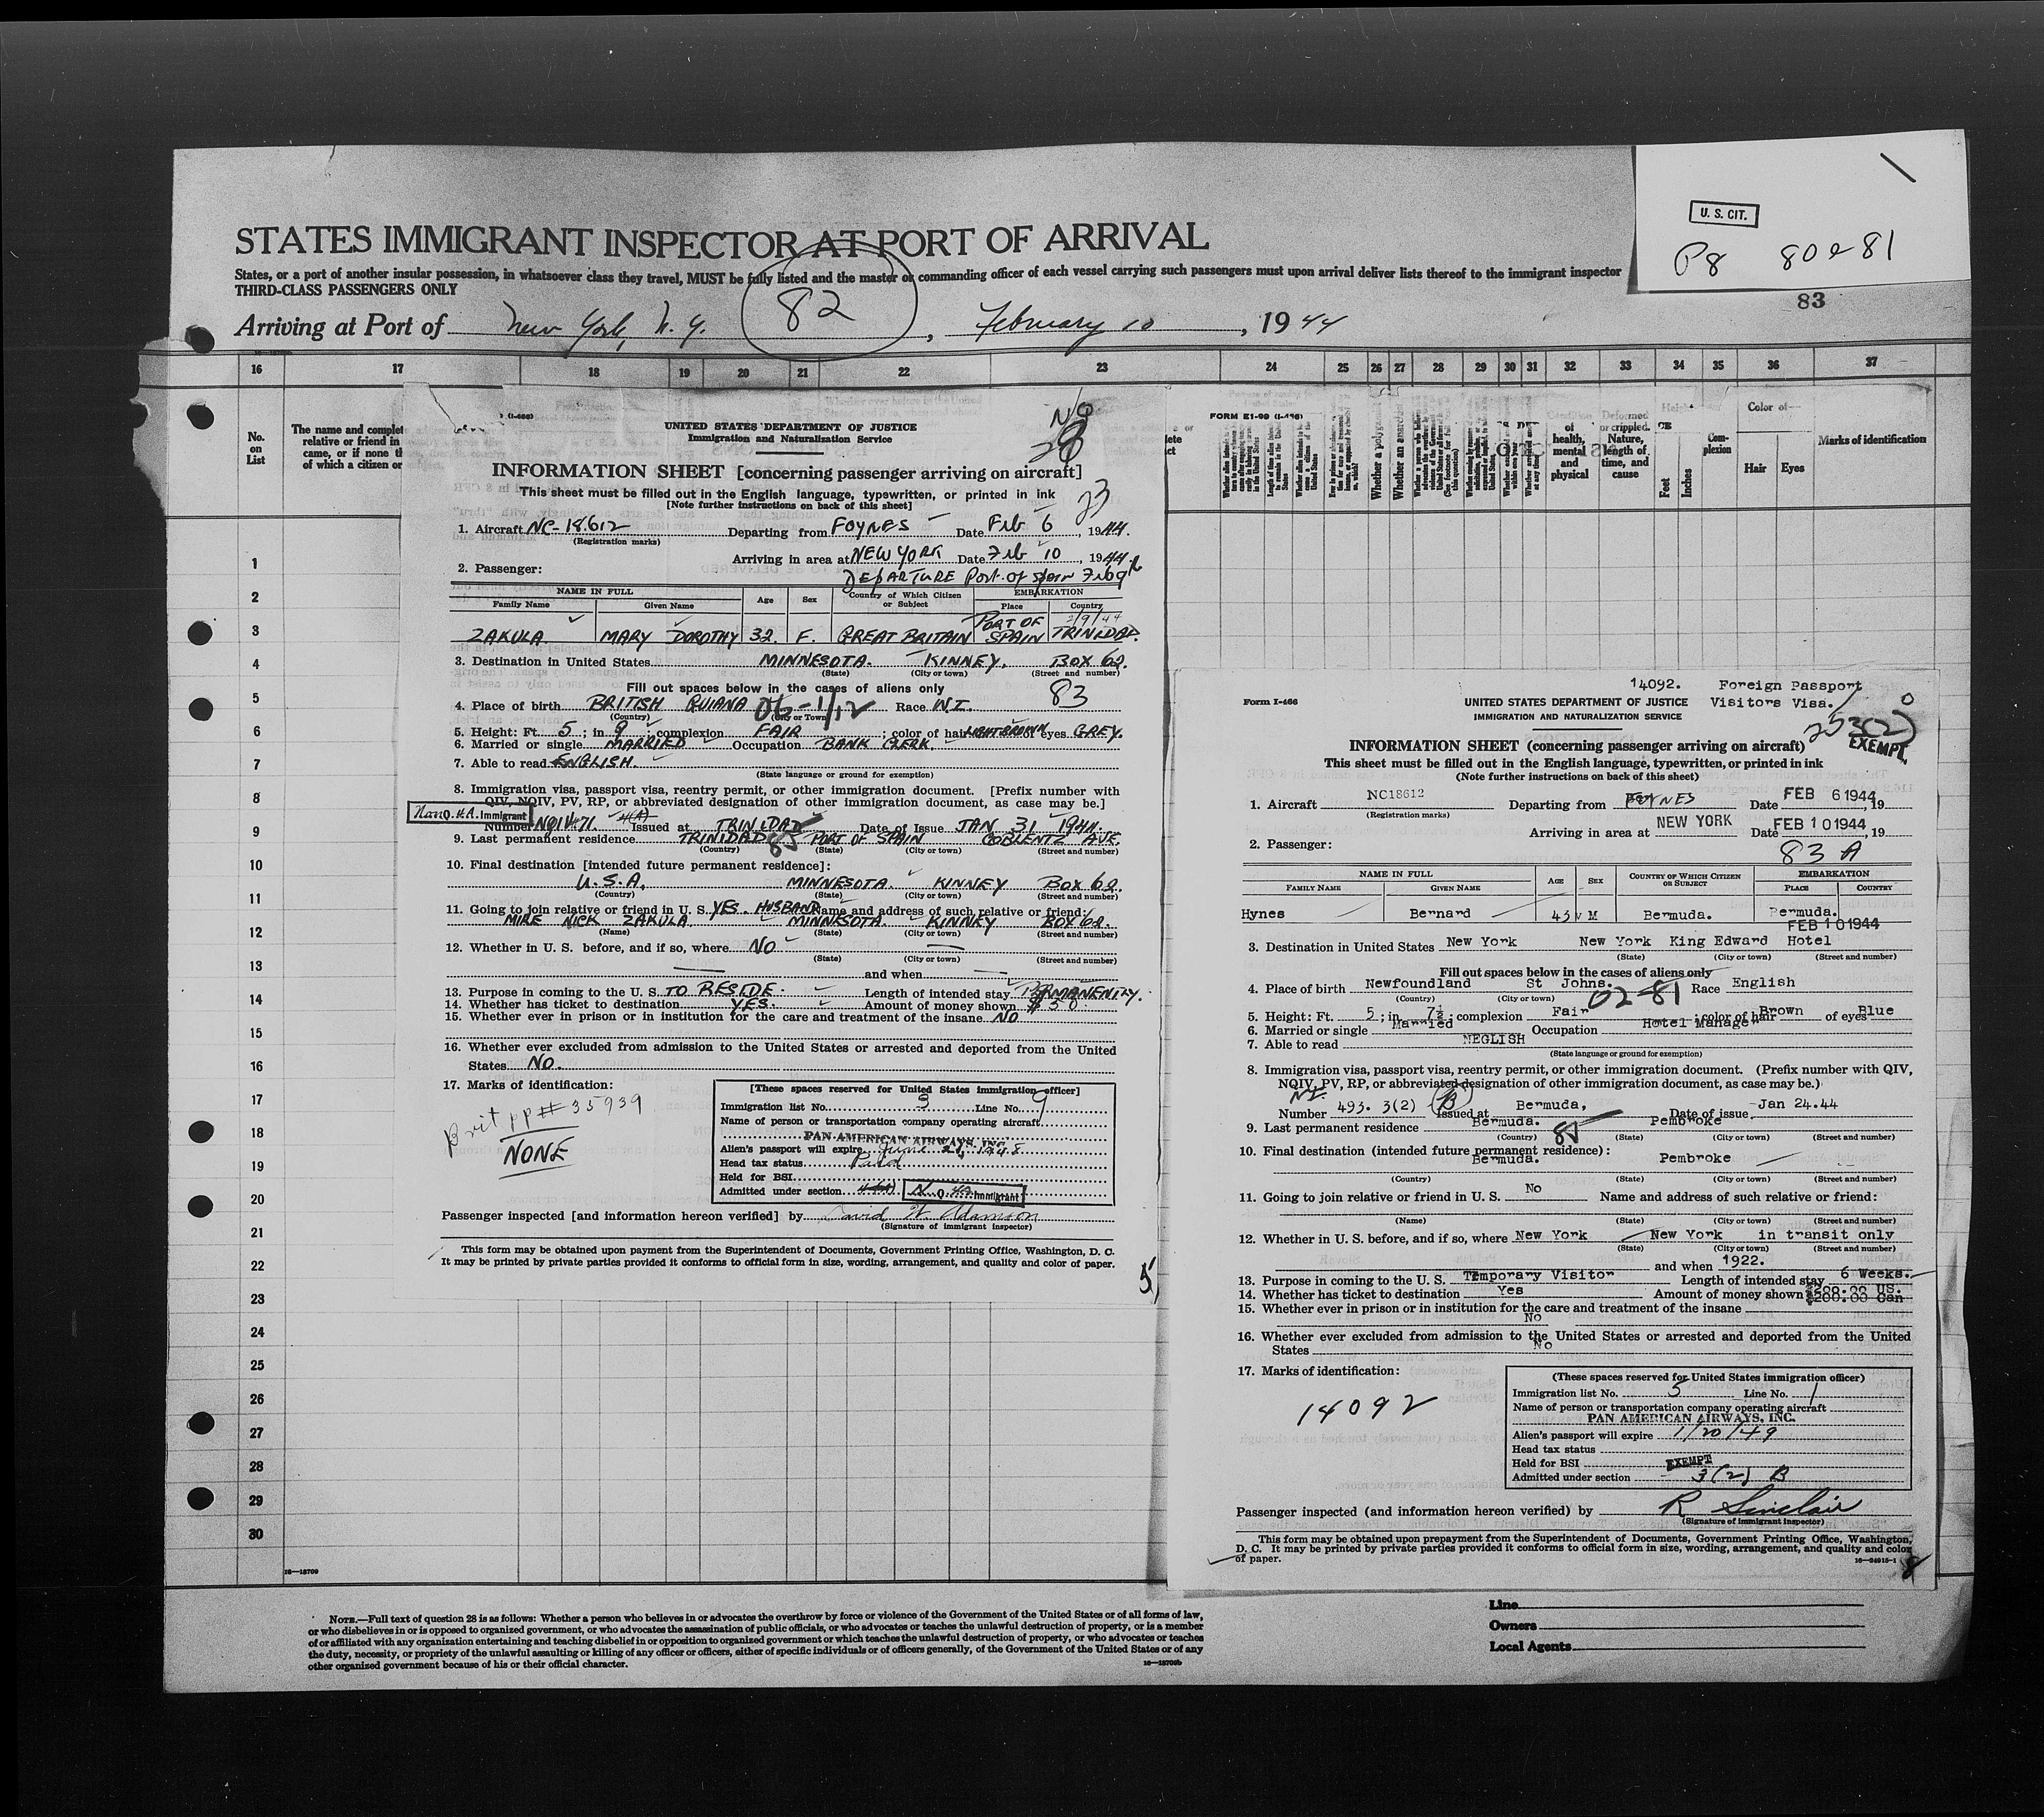 U. S. CIT.
P8 80 & 81
83
STATES IMMIGRANT INSPECTOR AT PORT OF ARRIVAL
States, or a port of another insular possession, in whatsoever class they travel, MUST be fully listed and the master or commanding officer of each vessel carrying such passengers must upon arrival deliver lists thereof to the immigrant inspector
THIRD-CLASS PASSENGERS ONLY
Arriving at Port of New York, N. Y. 82, February 10, 1944
16 17 18 19 20 21 22 23 24 25 26 27 28 29 30 31 32 33 34 35 36 37
No. on List
The name and complet
relative or friend in
came, or if none th
of which a citizen or
Whether a polygamist
Whether an anarchist
of health, mental and physical
Deformed or crippled. Nature, length of time, and cause
Feet Inches
Complexion
Color of—
Hair Eyes
Marks of identification
1
2
3
4
5
6
7
8
9
10
11
12
13
14
15
16
17
18
19
20
21
22
23
24
25
26
27
28
29
30
(I-466)
N8
28
UNITED STATES DEPARTMENT OF JUSTICE
Immigration and Naturalization Service
INFORMATION SHEET [concerning passenger arriving on aircraft]
This sheet must be filled out in the English language, typewritten, or printed in ink
[Note further instructions on back of this sheet]
23
1. Aircraft NC-18612 Departing from FOYNES Date Feb 6, 1944.
(Registration marks)
Arriving in area at NEW YORK Date Feb 10, 1944.
2. Passenger: DEPARTURE Port of Spain Feb 9th
NAME IN FULL Age Sex Country of Which Citizen or Subject EMBARKATION
Family Name Given Name Place Country
2/9/44
ZAKULA MARY DOROTHY 32. F. GREAT BRITAIN PORT OF SPAIN TRINIDAD.
3. Destination in United States MINNESOTA. KINNEY. BOX 62.
(State) (City or town) (Street and number)
Fill out spaces below in the cases of aliens only 83
4. Place of birth BRITISH GUIANA 06-1/12 Race W.I.
(Country) (City or Town)
5. Height: Ft. 5; in 9; complexion FAIR; color of hair LIGHT BROWN of eyes GREY.
6. Married or single MARRIED Occupation BANK CLERK.
7. Able to read ENGLISH.
(State language or ground for exemption)
8. Immigration visa, passport visa, reentry permit, or other immigration document. [Prefix number with
QIV, NQIV, PV, RP, or abbreviated designation of other immigration document, as case may be.]
Non Q. 4A. Immigrant
Number NQIV 471. 4(A) Issued at TRINIDAD Date of Issue JAN 31 1944.
9. Last permanent residence TRINIDAD 85 PORT OF SPAIN COBLENTZ AVE.
(Country) (State) (City or town) (Street and number)
10. Final destination [intended future permanent residence]:
U.S.A. MINNESOTA. KINNEY BOX 62.
(Country) (State) (City or town) (Street and number)
11. Going to join relative or friend in U. S. YES. HUSBAND Name and address of such relative or friend:
MIRE NICK ZAKULA. MINNESOTA. KINNEY BOX 62.
(Name) (State) (City or town) (Street and number)
12. Whether in U. S. before, and if so, where NO
(State) (City or town) (Street and number)
and when
13. Purpose in coming to the U. S. TO RESIDE. Length of intended stay PERMANENTLY.
14. Whether has ticket to destination YES. Amount of money shown $50.
15. Whether ever in prison or in institution for the care and treatment of the insane NO
16. Whether ever excluded from admission to the United States or arrested and deported from the United
States NO.
17. Marks of identification:
Brit pp# 35939
NONE
[These spaces reserved for United States immigration officer]
Immigration list No. 3 Line No. 9
Name of person or transportation company operating aircraft
PAN AMERICAN AIRWAYS, INC.
Alien's passport will expire June 24, 1948
Head tax status Paid
Held for BSI
Admitted under section 4(A) N. Q. 4A Immigrant
Passenger inspected [and information hereon verified] by David W. Adamson
(Signature of immigrant inspector)
This form may be obtained upon payment from the Superintendent of Documents, Government Printing Office, Washington, D. C.
It may be printed by private parties provided it conforms to official form in size, wording, arrangement, and quality and color of paper.
5
FORM E1-99 (I-466)
14092. Foreign Passport
Visitors Visa. 0
Form I-466
UNITED STATES DEPARTMENT OF JUSTICE
IMMIGRATION AND NATURALIZATION SERVICE
253(2)
EXEMPT.
INFORMATION SHEET (concerning passenger arriving on aircraft)
This sheet must be filled out in the English language, typewritten, or printed in ink
(Note further instructions on back of this sheet)
1. Aircraft NC18612 Departing from FOYNES Date FEB 6 1944, 19
(Registration marks)
Arriving in area at NEW YORK Date FEB 10 1944, 19
2. Passenger: 83 A
NAME IN FULL AGE SEX COUNTRY OF WHICH CITIZEN OR SUBJECT EMBARKATION
FAMILY NAME GIVEN NAME PLACE COUNTRY
Hynes Bernard 43 M Bermuda. Bermuda.
FEB 10 1944
3. Destination in United States New York New York King Edward Hotel
(State) (City or town) (Street and number)
Fill out spaces below in the cases of aliens only
4. Place of birth Newfoundland St Johns. 02-81 Race English
(Country) (City or town)
5. Height: Ft. 5; in 7½; complexion Fair; color of hair Brown of eyes Blue
6. Married or single Married Occupation Hotel Manager
7. Able to read NEGLISH
(State language or ground for exemption)
8. Immigration visa, passport visa, reentry permit, or other immigration document. (Prefix number with QIV,
NQIV, PV, RP, or abbreviated designation of other immigration document, as case may be.)
Number 493. 3(2) B Issued at Bermuda, Date of issue Jan 24.44
9. Last permanent residence Bermuda. 85 Pembroke
(Country) (State) (City or town) (Street and number)
10. Final destination (intended future permanent residence):
Bermuda. Pembroke
(Country) (State) (City or town) (Street and number)
11. Going to join relative or friend in U. S. No Name and address of such relative or friend:
(Name) (State) (City or town) (Street and number)
12. Whether in U. S. before, and if so, where New York New York in transit only
(State) (City or town) (Street and number)
and when 1922.
13. Purpose in coming to the U. S. Temporary Visitor Length of intended stay 6 Weeks.
14. Whether has ticket to destination Yes Amount of money shown $200.00 US.
$200.00 Can
15. Whether ever in prison or in institution for the care and treatment of the insane
No
16. Whether ever excluded from admission to the United States or arrested and deported from the United
States No
17. Marks of identification:
14092
(These spaces reserved for United States immigration officer)
Immigration list No. 5 Line No. 1
Name of person or transportation company operating aircraft
PAN AMERICAN AIRWAYS, INC.
Alien's passport will expire 1/20/49
Head tax status
Held for BSI EXEMPT
Admitted under section 3(2) B
Passenger inspected (and information hereon verified) by R Sinclair
(Signature of immigrant inspector)
This form may be obtained upon prepayment from the Superintendent of Documents, Government Printing Office, Washington,
D. C. It may be printed by private parties provided it conforms to official form in size, wording, arrangement, and quality and color
of paper.
16—24915-1
16—18709
NOTE.—Full text of question 28 is as follows: Whether a person who believes in or advocates the overthrow by force or violence of the Government of the United States or of all forms of law,
or who disbelieves in or is opposed to organized government, or who advocates the assassination of public officials, or who advocates or teaches the unlawful destruction of property, or is a member
of or affiliated with any organization entertaining and teaching disbelief in or opposition to organized government or which teaches the unlawful destruction of property, or who advocates or teaches
the duty, necessity, or propriety of the unlawful assaulting or killing of any officer or officers, either of specific individuals or of officers generally, of the Government of the United States or of any
other organized government because of his or their official character.
16—18709b
Line
Owners
Local Agents